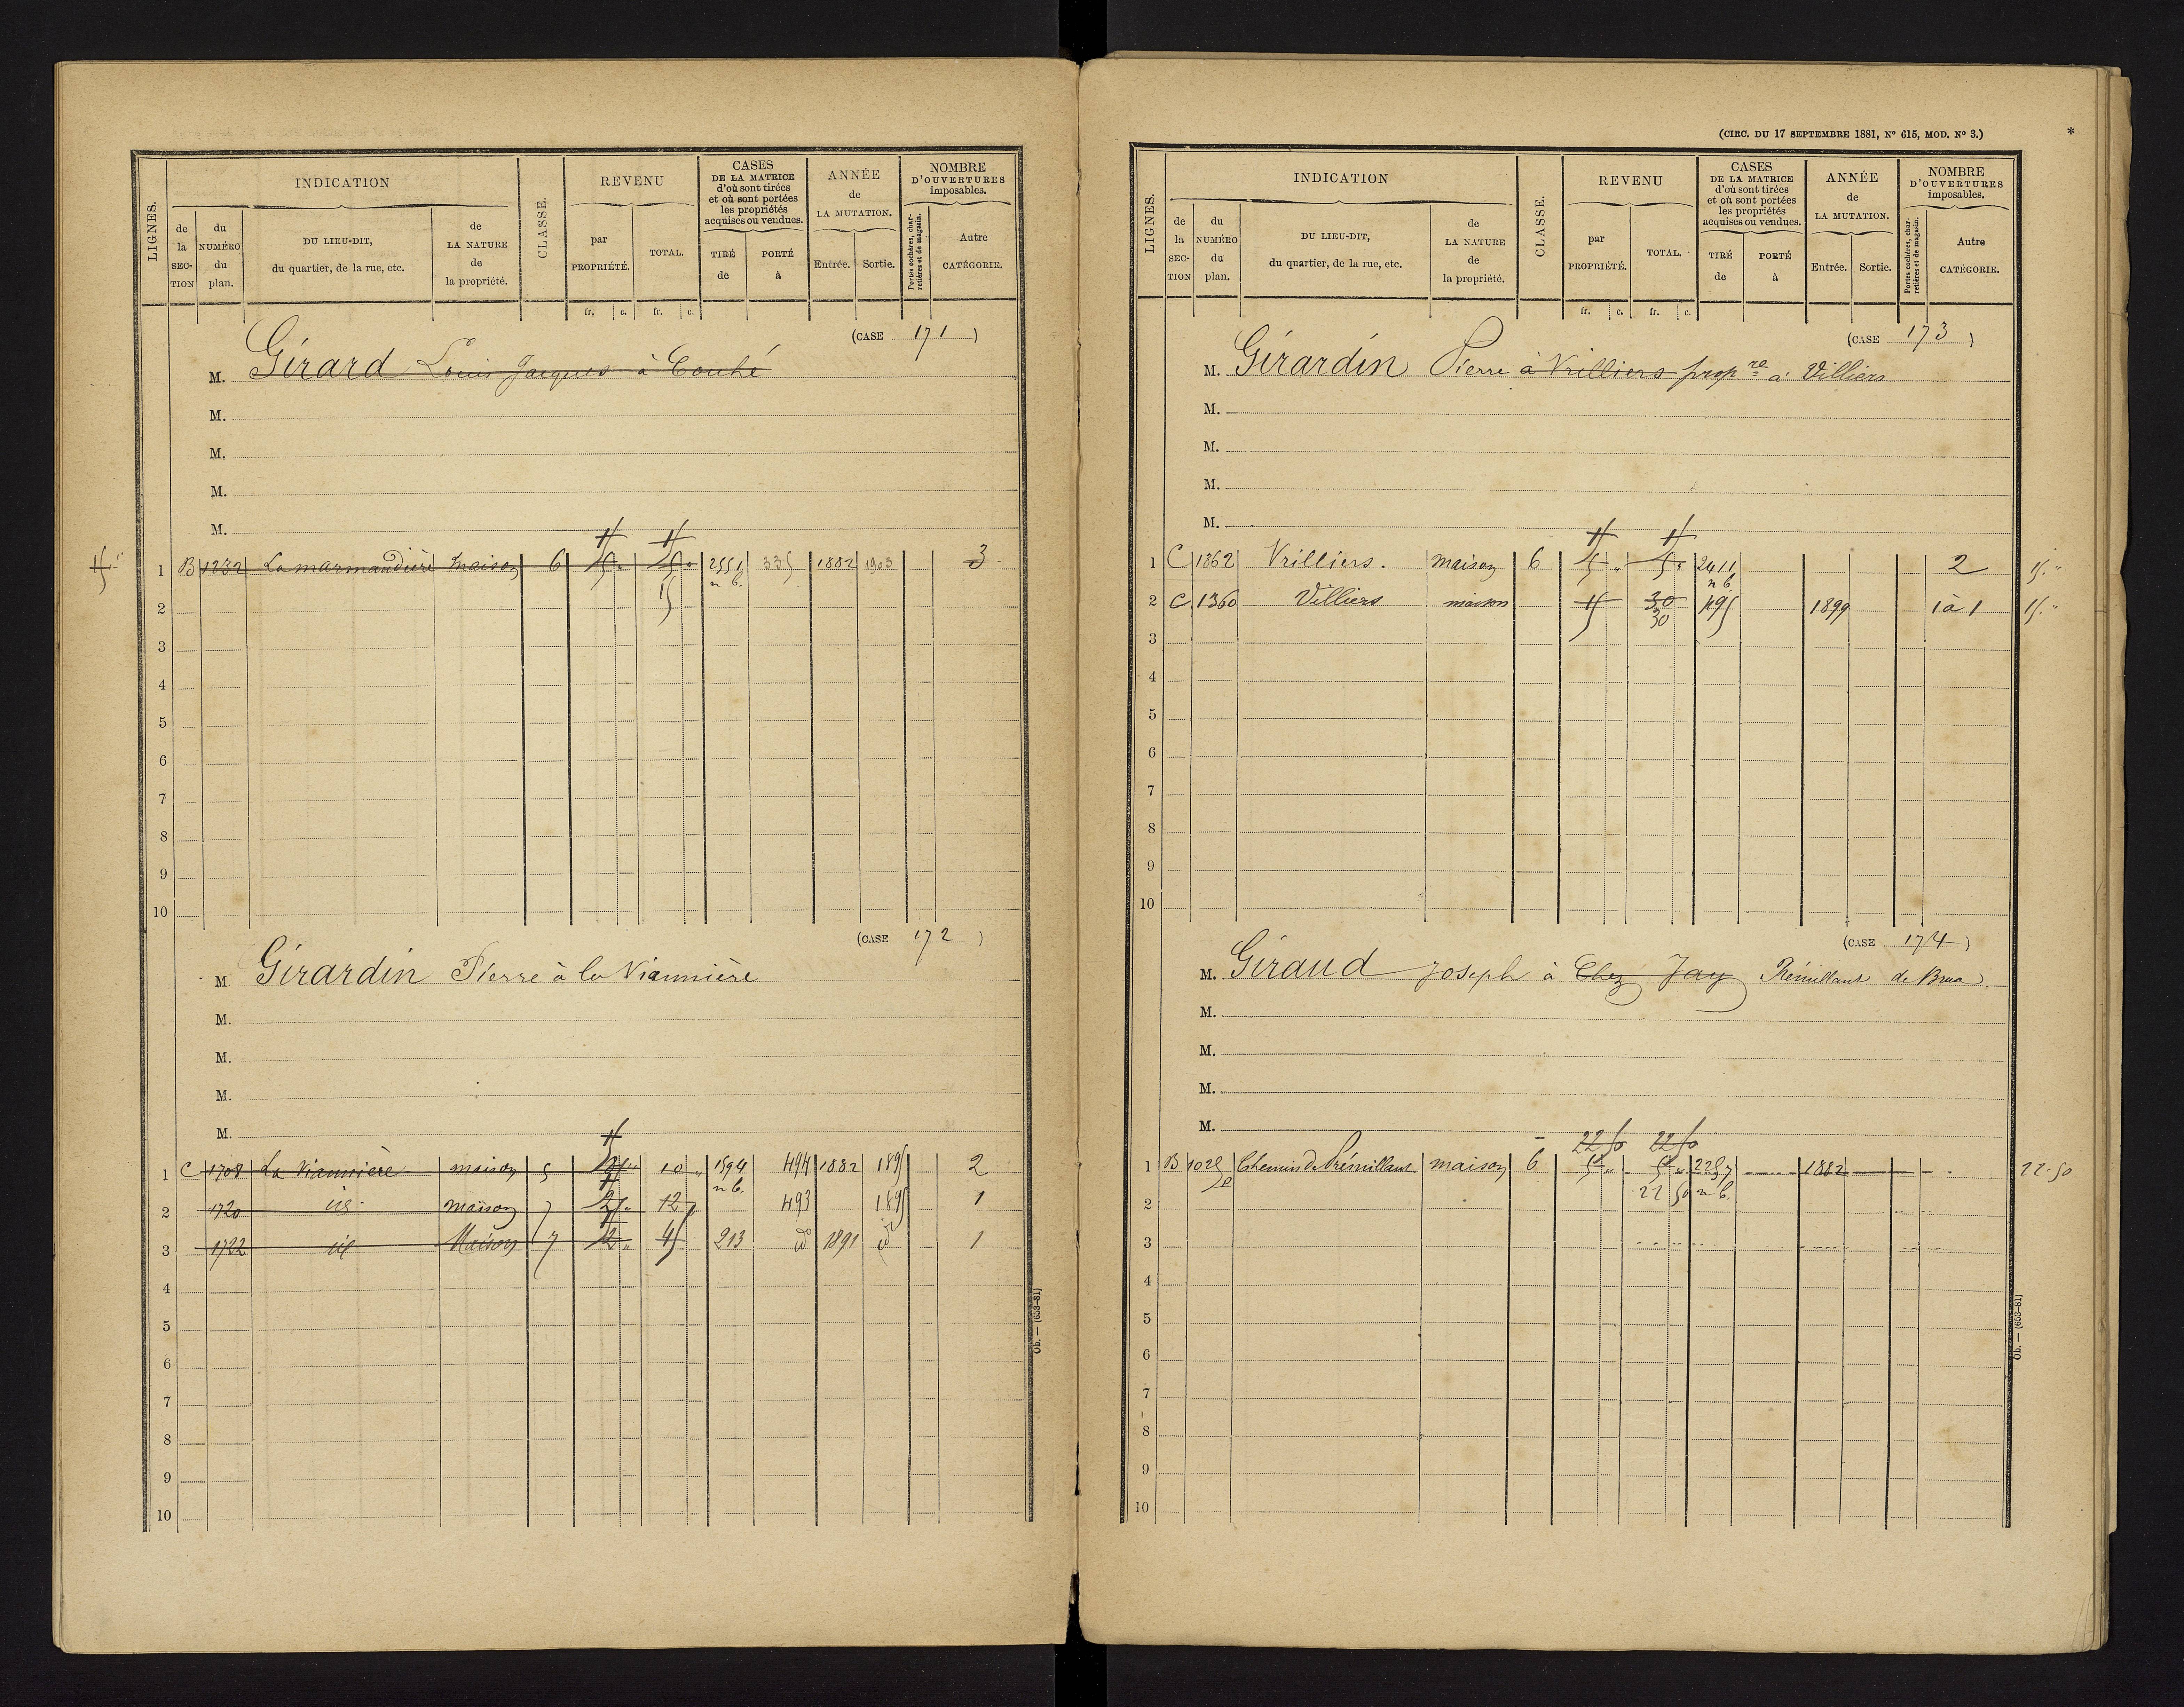 INDICATION
REVENU
CASES
DE LA MATRICE
d'où sont tirées
et où sont portées
les propriétés
acquises ou vendues.
ANNÉE
de
LA MUTATION.
NOMBRE
D'OUVERTURES
imposables.
LIGNES.
de la SEC-TION
du NUMÉRO du plan.
DU LIEU-DIT,
du quartier, de la rue, etc.
de LA NATURE de la propriété.
CLASSE.
par PROPRIÉTÉ.
TOTAL.
TIRÉ de
PORTÉ à
Entrée.
Sortie.
Portes cochères, char-retières et de magasin.
Autre CATÉGORIE.
fr. c. fr. c.
(CASE 171)
M. Girard Louis Jacques à Couhé
M.
M.
M.
M.
1 B 1232 La marmandière maison 6 2551 335 1882 1903 3
n b.
2 15
3
4
5
6
7
8
9
10
(CASE 172)
M Girardin Pierre à la Viannière
M.
M.
M.
M.
1 C 1708 La Viannière maison 5 10 1594 494 1882 1895 2
n b.
2 1720 id. maison 7 12 493 1895 1
3 1722 id Maison 7 12 45 213 id 1891 id 1
4
5
6
7
8
9
10
Ob. — (653-81)
(CIRC. DU 17 SEPTEMBRE 1881, N° 615, MOD. N° 3.)
*
INDICATION
REVENU
CASES
DE LA MATRICE
d'où sont tirées
et où sont portées
les propriétés
acquises ou vendues.
ANNÉE
de
LA MUTATION.
NOMBRE
D'OUVERTURES
imposables.
LIGNES.
de la SEC-TION
du NUMÉRO du plan.
DU LIEU-DIT,
du quartier, de la rue, etc.
de LA NATURE de la propriété.
CLASSE.
par PROPRIÉTÉ.
TOTAL.
TIRÉ de
PORTÉ à
Entrée.
Sortie.
Portes cochères, char-retières et de magasin.
Autre CATÉGORIE.
fr. c. fr. c.
(CASE 173)
M. Girardin Pierre à Vrilliers propre à Villiers
M.
M.
M.
M.
1 C 1362 Vrilliers. maison 6 2411 2 15.
n b.
2 C 1360 Villiers maison 15 30 495 1899 1 à 1 15.
30
3
4
5
6
7
8
9
10
(CASE 174)
M. Giraud Joseph à Chez Jay
M.
M.
M.
M.
22 50 22 50
1 B 1025 maison 6 2257 1882 22.50
22 50 n b.
2
3
4
5
6
7
8
9
10
Ob. — (653-81)